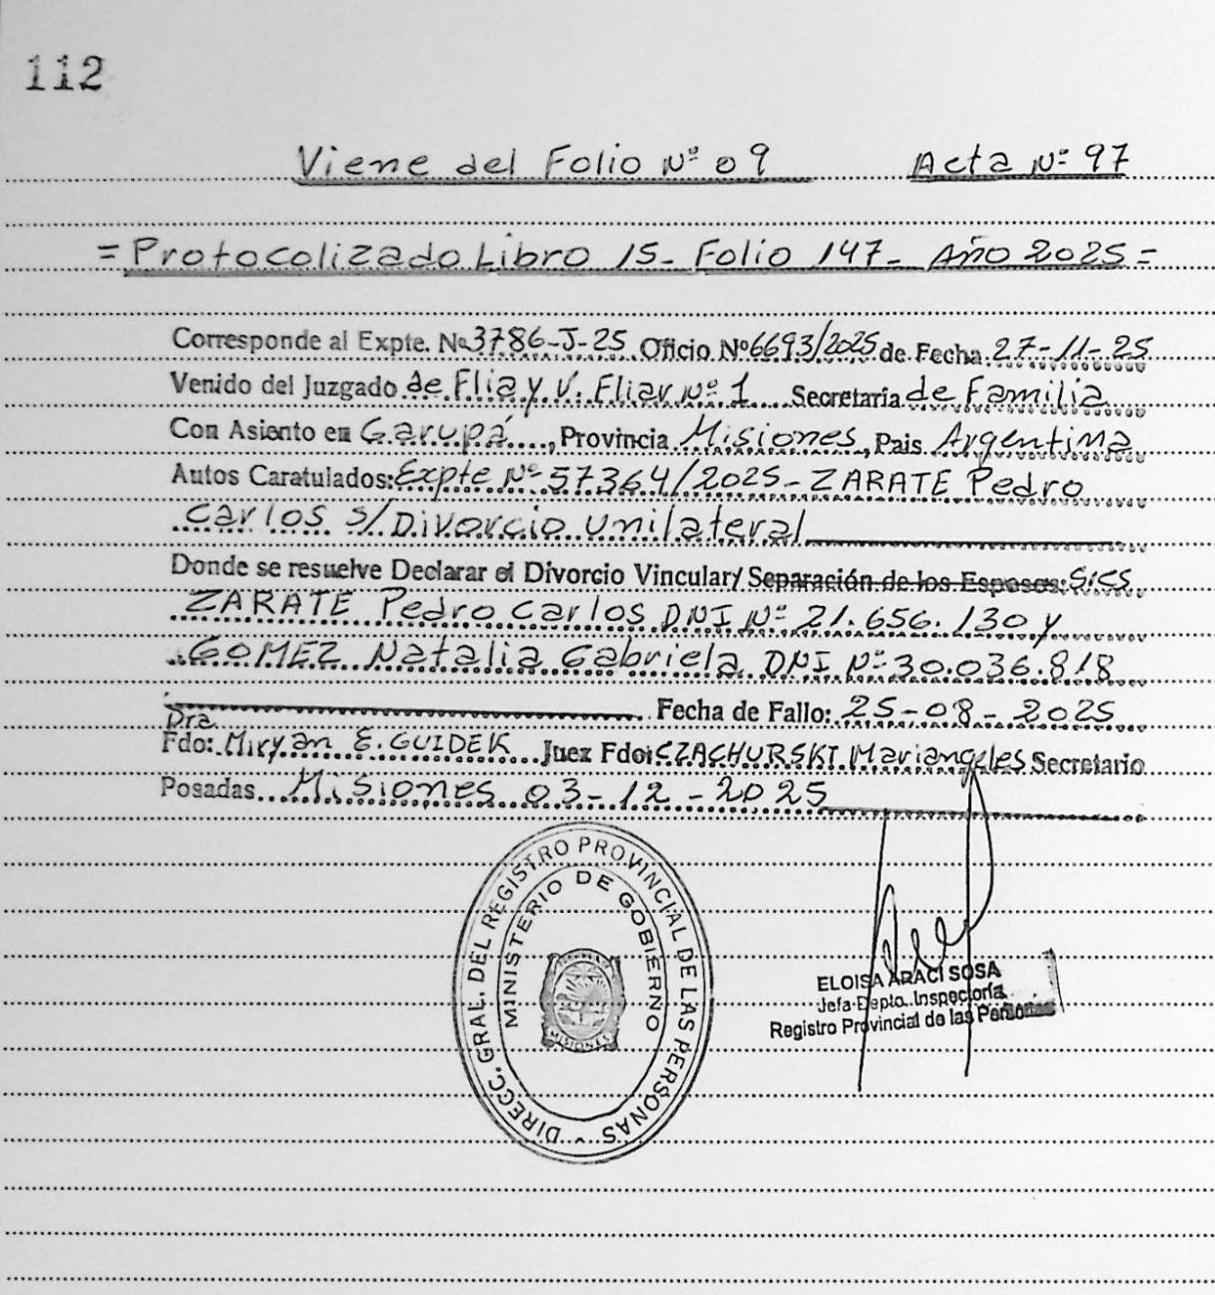 112
Viene del Folio Nº 09 Acta Nº 97
= Protocolizado Libro 15- Folio 147- Año 2025 =
Corresponde al Expte. Nº 3786-J-25 Oficio Nº 6693/2025 de Fecha: 27-11-25
Venido del Juzgado de Flia y V. Fliar Nº 1 Secretaría de Familia
Con Asiento en Garupá, Provincia Misiones, Pais Argentina
Autos Caratulados: Expte Nº 57364/2025- ZARATE Pedro
Carlos s/Divorcio Unilateral
Donde se resuelve Declarar el Divorcio Vincular/ Separación de los Esposos: Sres
ZARATE Pedro Carlos DNI Nº 21.656.130 y
GOMEZ Natalia Gabriela DNI Nº 30.036.818
Fecha de Fallo: 25-08-2025
Dra
Fdo: Miryan E. GUIDEK Juez Fdo: CZACHURSKI Mariangeles Secretario
Posadas Misiones 03-12-2025
DIRECC. GRAL. DEL REGISTRO PROVINCIAL DE LAS PERSONAS -
MINISTERIO DE GOBIERNO
MISIONES
ELOISA ARACI SOSA
Jefa Depto. Inspectoría
Registro Provincial de las Personas